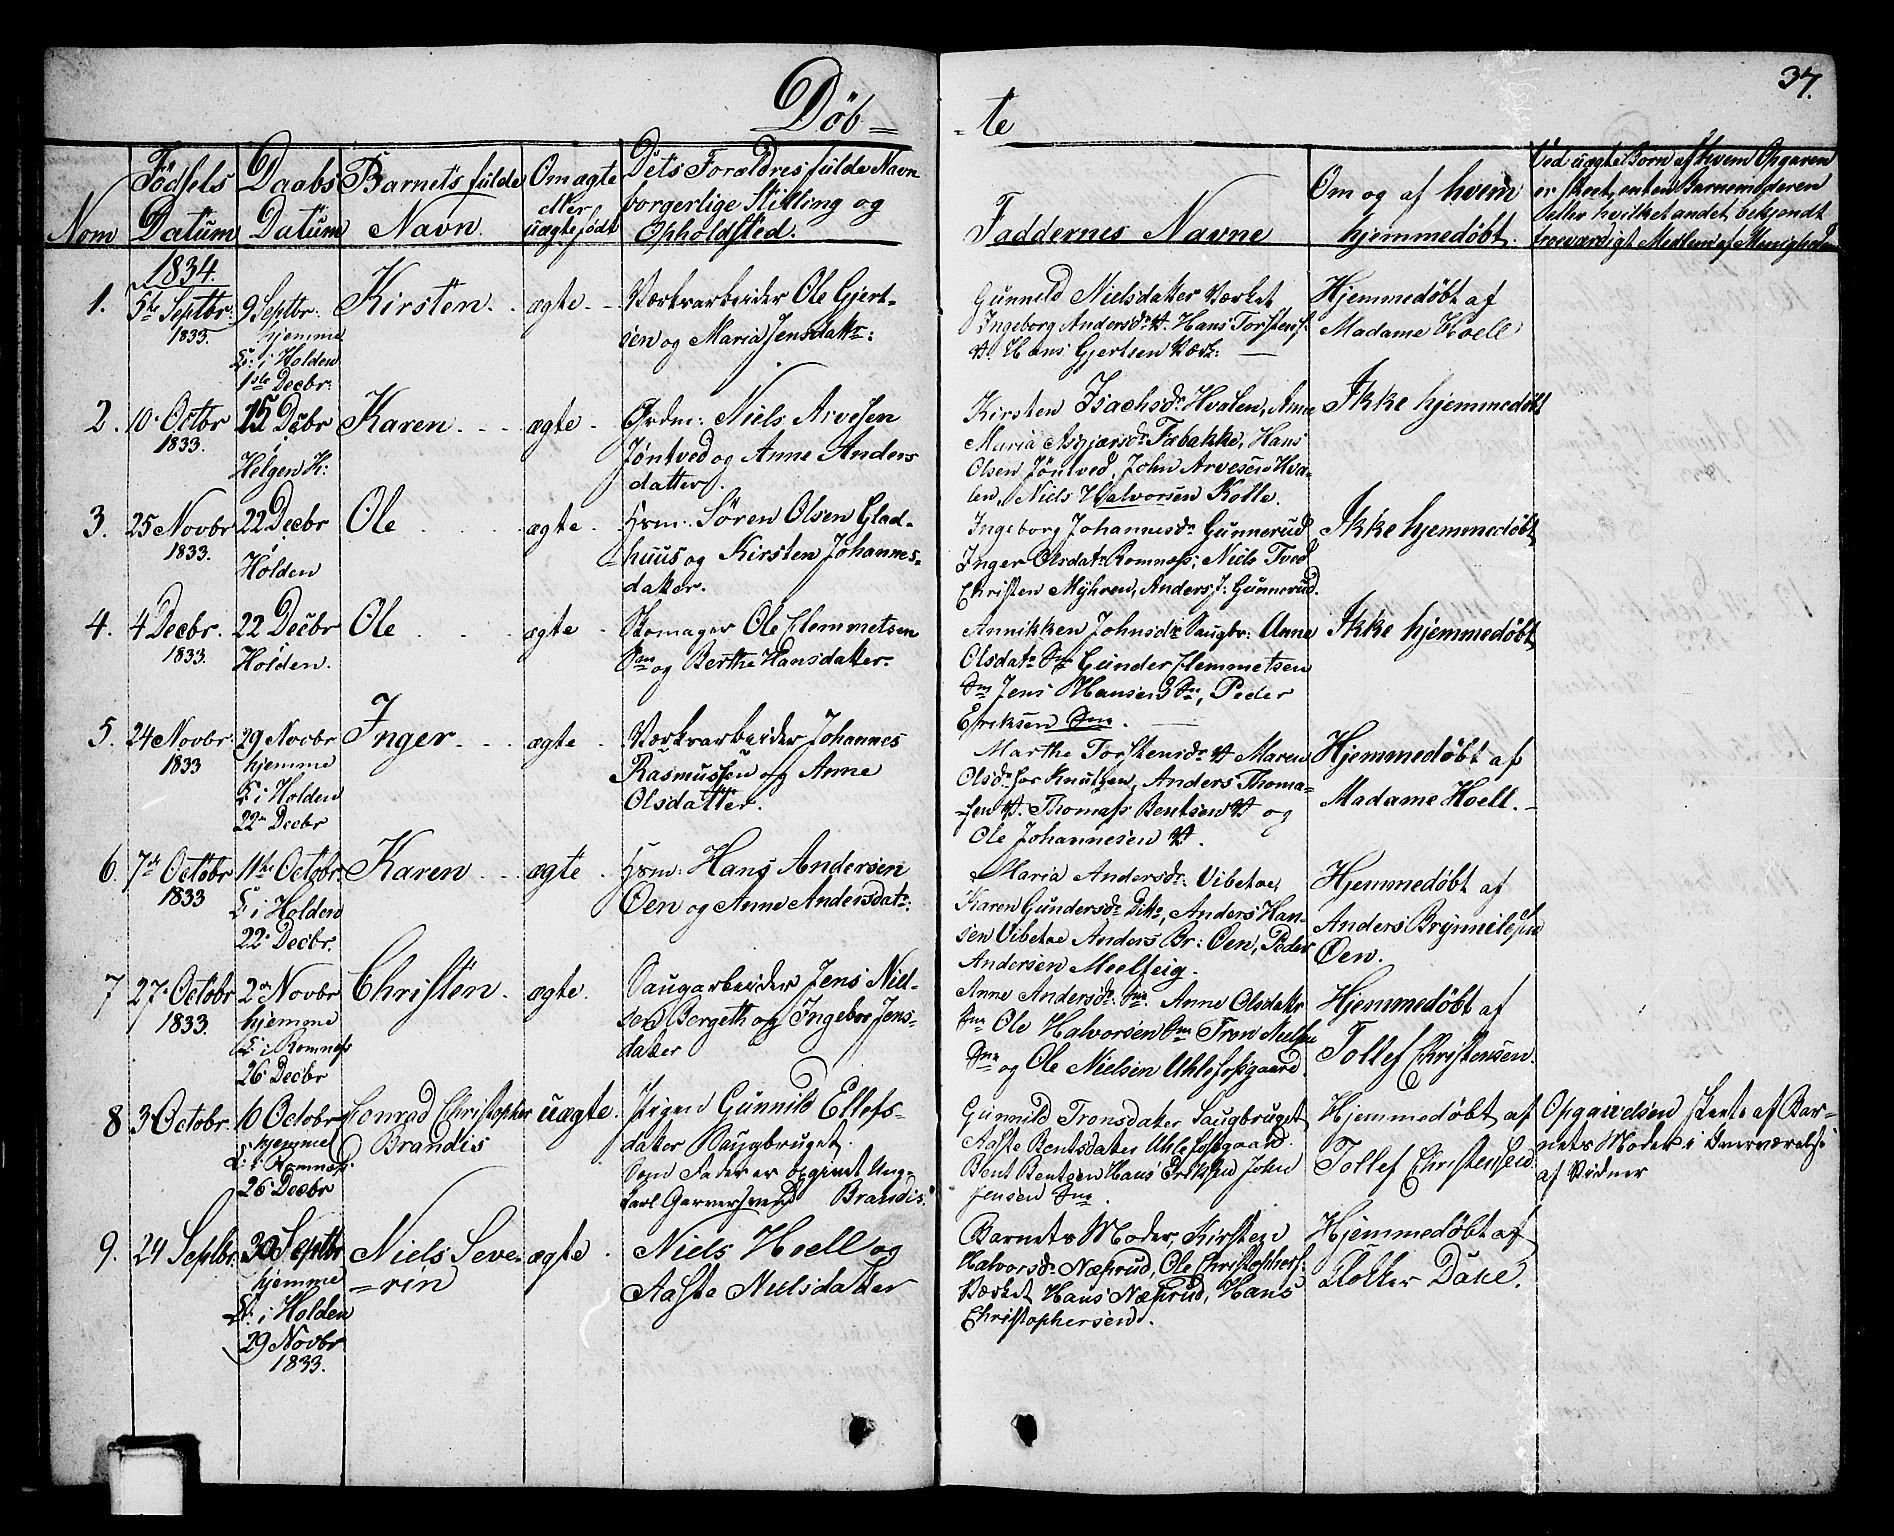 37.
Döb= -te
Nom
Födsels Datum
Daabs Datum
Barnets fulde Navn.
Om ægte eller uægte født
Dets Forældres fulde Navn borgerlige Stilling og Opholdsted.
Faddernes Navne
Om og af hvem hjemmedøbt.
Ved uægte Børn af hvem Opgaven er skeet, enten Barnemoderen eller hvilket andet bekjendt troeværdigt Medlem af Menigheden
1834.
1.
5te Septbr.
1833.
9 Septbr:
hjemme
i Holden
1ste Decbr:
Kirsten
ægte
Værksarbeider Ole Gjert-
sen og Maria Jensdatr:
Gunnild Nielsdatter Værket
Ingeborg Andersdr Hans Torstens:
Hans Gjertsen Værk:
Hjemmedøbt af
Madame Hoell
2.
10 Octbr
1833.
15 Decbr
i
Helgen K:
Karen
ægte
Grdm: Niels Arvesen
Jøntved og Anne Anders
datter.
Kirsten Isachsdr Hvalen, Anne
Maria Asgjersdr Fæbakke, Hans
Olsen Jøntved, John Arvesen Hva-
len, Niels Halvorsen Kolle.
Ikke hjemmedøbt
3.
25 Novbr
1833.
22 Decbr
i
Holden
Ole
ægte
Hsm: Søren Olsen Glad-
huus og Kirsten Johannes-
datter.
Ingeborg Johannesdr Gunnerud
Inger Olsdatr Romnæss; Niels
Christen Myhren, Anders J: Gunnerud.
Ikke hjemmedøbt
4.
4 Decbr.
1833.
22 Decbr
i
Holden.
Ole
ægte
Skomager Ole Clemmetsen
og Berthe Hansdatter.
Annikken Johnsdr Saugbr: Anne
Olsdatr Gunder Clemmetsen
Jens Hansen Peder
Eriksen
Ikke hjemmedøbt
5.
24 Novbr.
1833
29 Novbr
hjemme
i Holden
22 Decbr
Inger
ægte
Værksarbeider Johannes
Rasmussen og Anne
Olsdatter.
Marthe Torstensdr Maren
Olsdr for Knutsen, Anders Thoma-
sen Thomass Bentsen og
Ole Johannesen
Hjemmedøbt af
Madame Hoell.
6.
7de Octobr
1833
11te Octobr.
i Holden
22 Decbr.
Karen
ægte
Hsm: Hans Andersen
Øen og Anne Andersdatr:
Maria Andersdr: Vibetoe,
Karen Gundersdr Anders Han-
sen Vibetoe Anders Br: Øen, Peder
Andersen Meelteig.
Hjemmedøbt af
Anders Brynnilsen
Øen.
7
27 Octobr
1833.
2 Novbr
hjemme
i Romnæss
26 Decbr
Christen
ægte
Saugarbeider Jens Niel-
sen Bergeth og Ingebor Jens-
datter
Anne Andersdr: Anne Olsdatr
Ole Halvorsen Tron Nielsen
og Ole Nielsen Uhlefossgaard.
Hjemmedøbt af
Tollef Christensen.
8
3 Octobr.
6 Octobr
hjemme
i Romnæss
26 Decbr
Conrad Christopher
Brandis
uægte
Pigen Gunnild Ellefs-
datter Saugbruget.
Som Fader er opgivet Ung-
karl Garversvend Brandis.
Gunnild Tronsdatter Saugbruget
Aaste Bentsdatter Uhlefossgaard.
Bent Bentsen Hans Eriksen John
Jensen
Hjemmedøbt af
Tollef Christensen
Opgivelsen skeete af Bar-
nets Moder i Overværelse
af Vidner
9.
24 Septbr.
30 Septbr
hjemme
i Holden
29 Novbr
1833.
Niels Seve-
=rin
ægte
Niels Hoell og
Aaste Nielsdatter
Barnets Moder, Kirstene
Halvorsdr Næsrud, Ole Christophers:
Værket Hans Næsrud, Hans
Christophersen.
Hjemmedøbt af